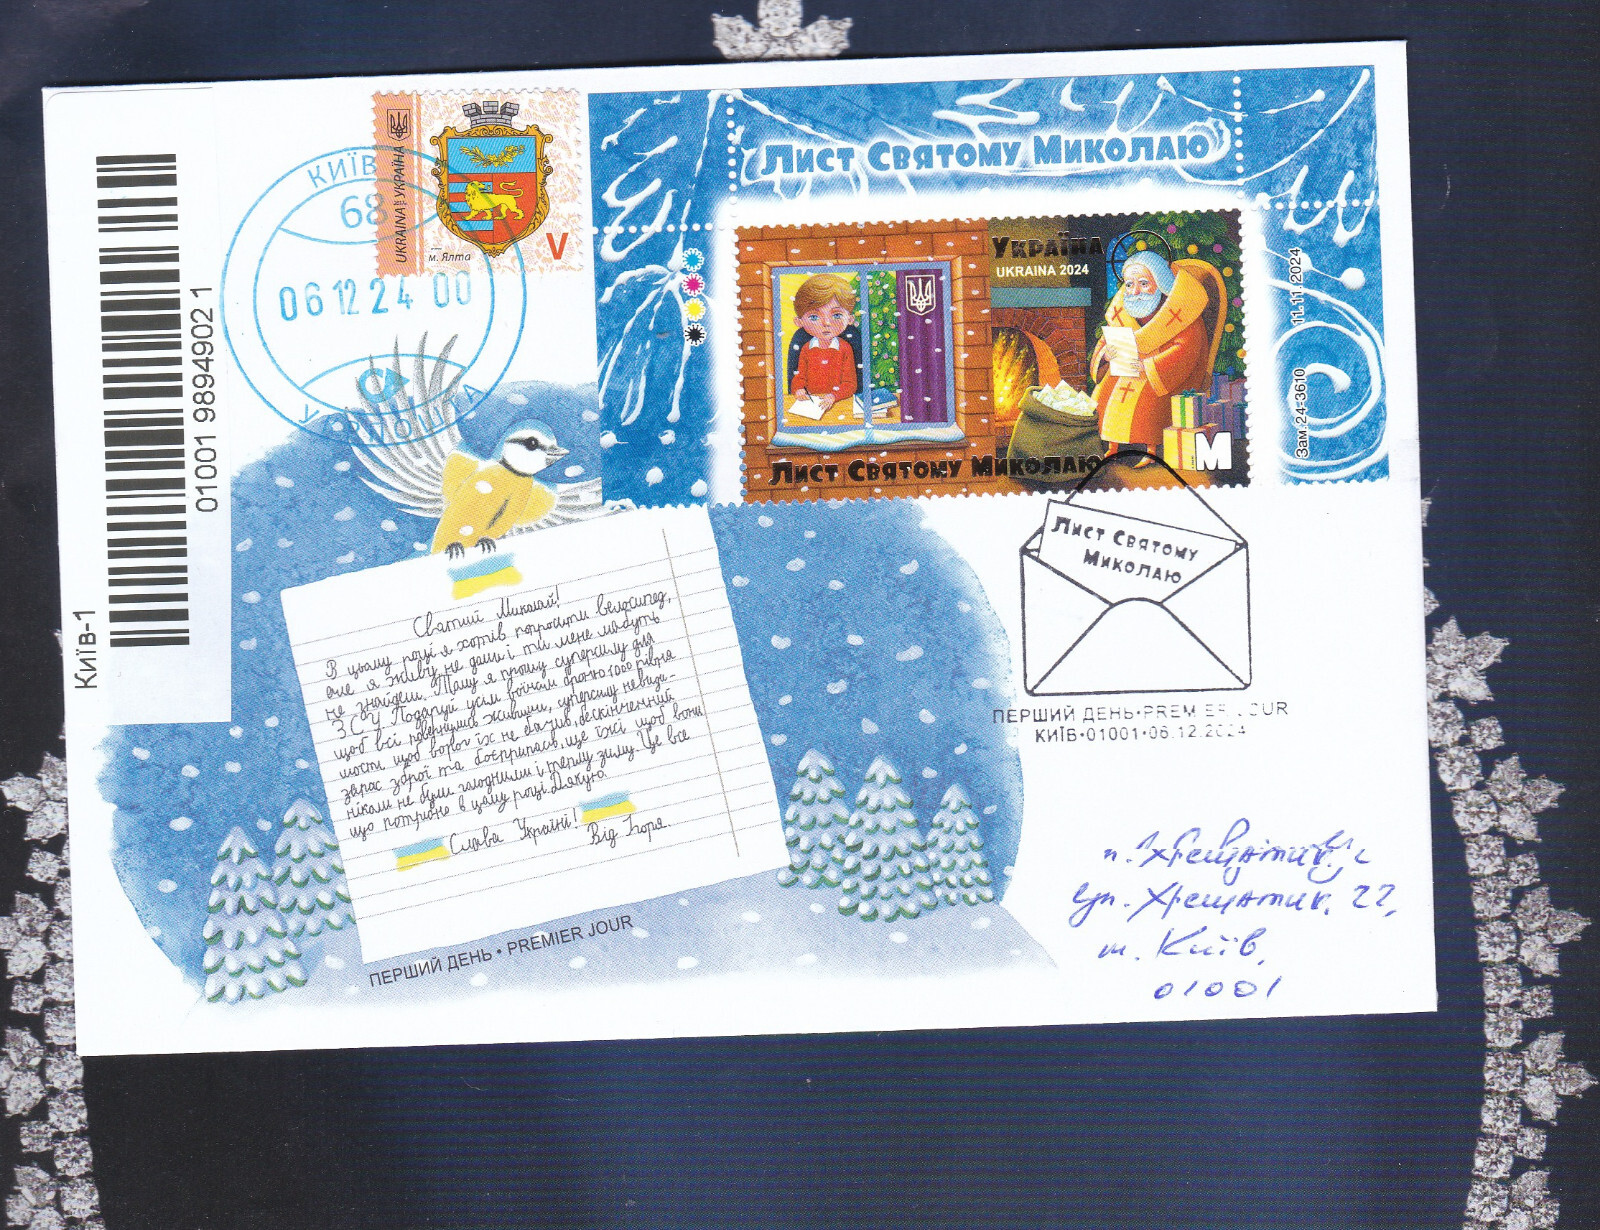 Київ-1
01001 9894902 1
КИЇВ
68
06 12 24 00
УКРПОШТА
UKRAINA УКРАЇНА
м. Ялта
V
Лист Святому Миколаю
Україна
UKRAINA 2024
Лист Святому Миколаю
M
Зам. 24-3610 11.11.2024
Лист Святому
Миколаю
ПЕРШИЙ ДЕНЬ•PREMIER JOUR
КИЇВ•01001•06.12.2024
Святий Миколай!
В цьому році я хотів попросити велосипед,
але я живу не дома і ти мене мабуть
не знайдеш. Тому я прошу суперсилу для
ЗСУ. Подаруй усім воїнам броню 1000 рівня
щоб всі повернулись живими, суперсилу невиди-
мости щоб ворог їх не бачив, бескінченний
запас зброї та боєприпасів, ще їжі щоб вони
ніколи не були голодними і теплу зиму. Це все
що потрібно в цьому році. Дякую.
Слава Україні! Від Ігоря.
ПЕРШИЙ ДЕНЬ • PREMIER JOUR
вул. Хрещатик, 22,
м. Київ,
01001